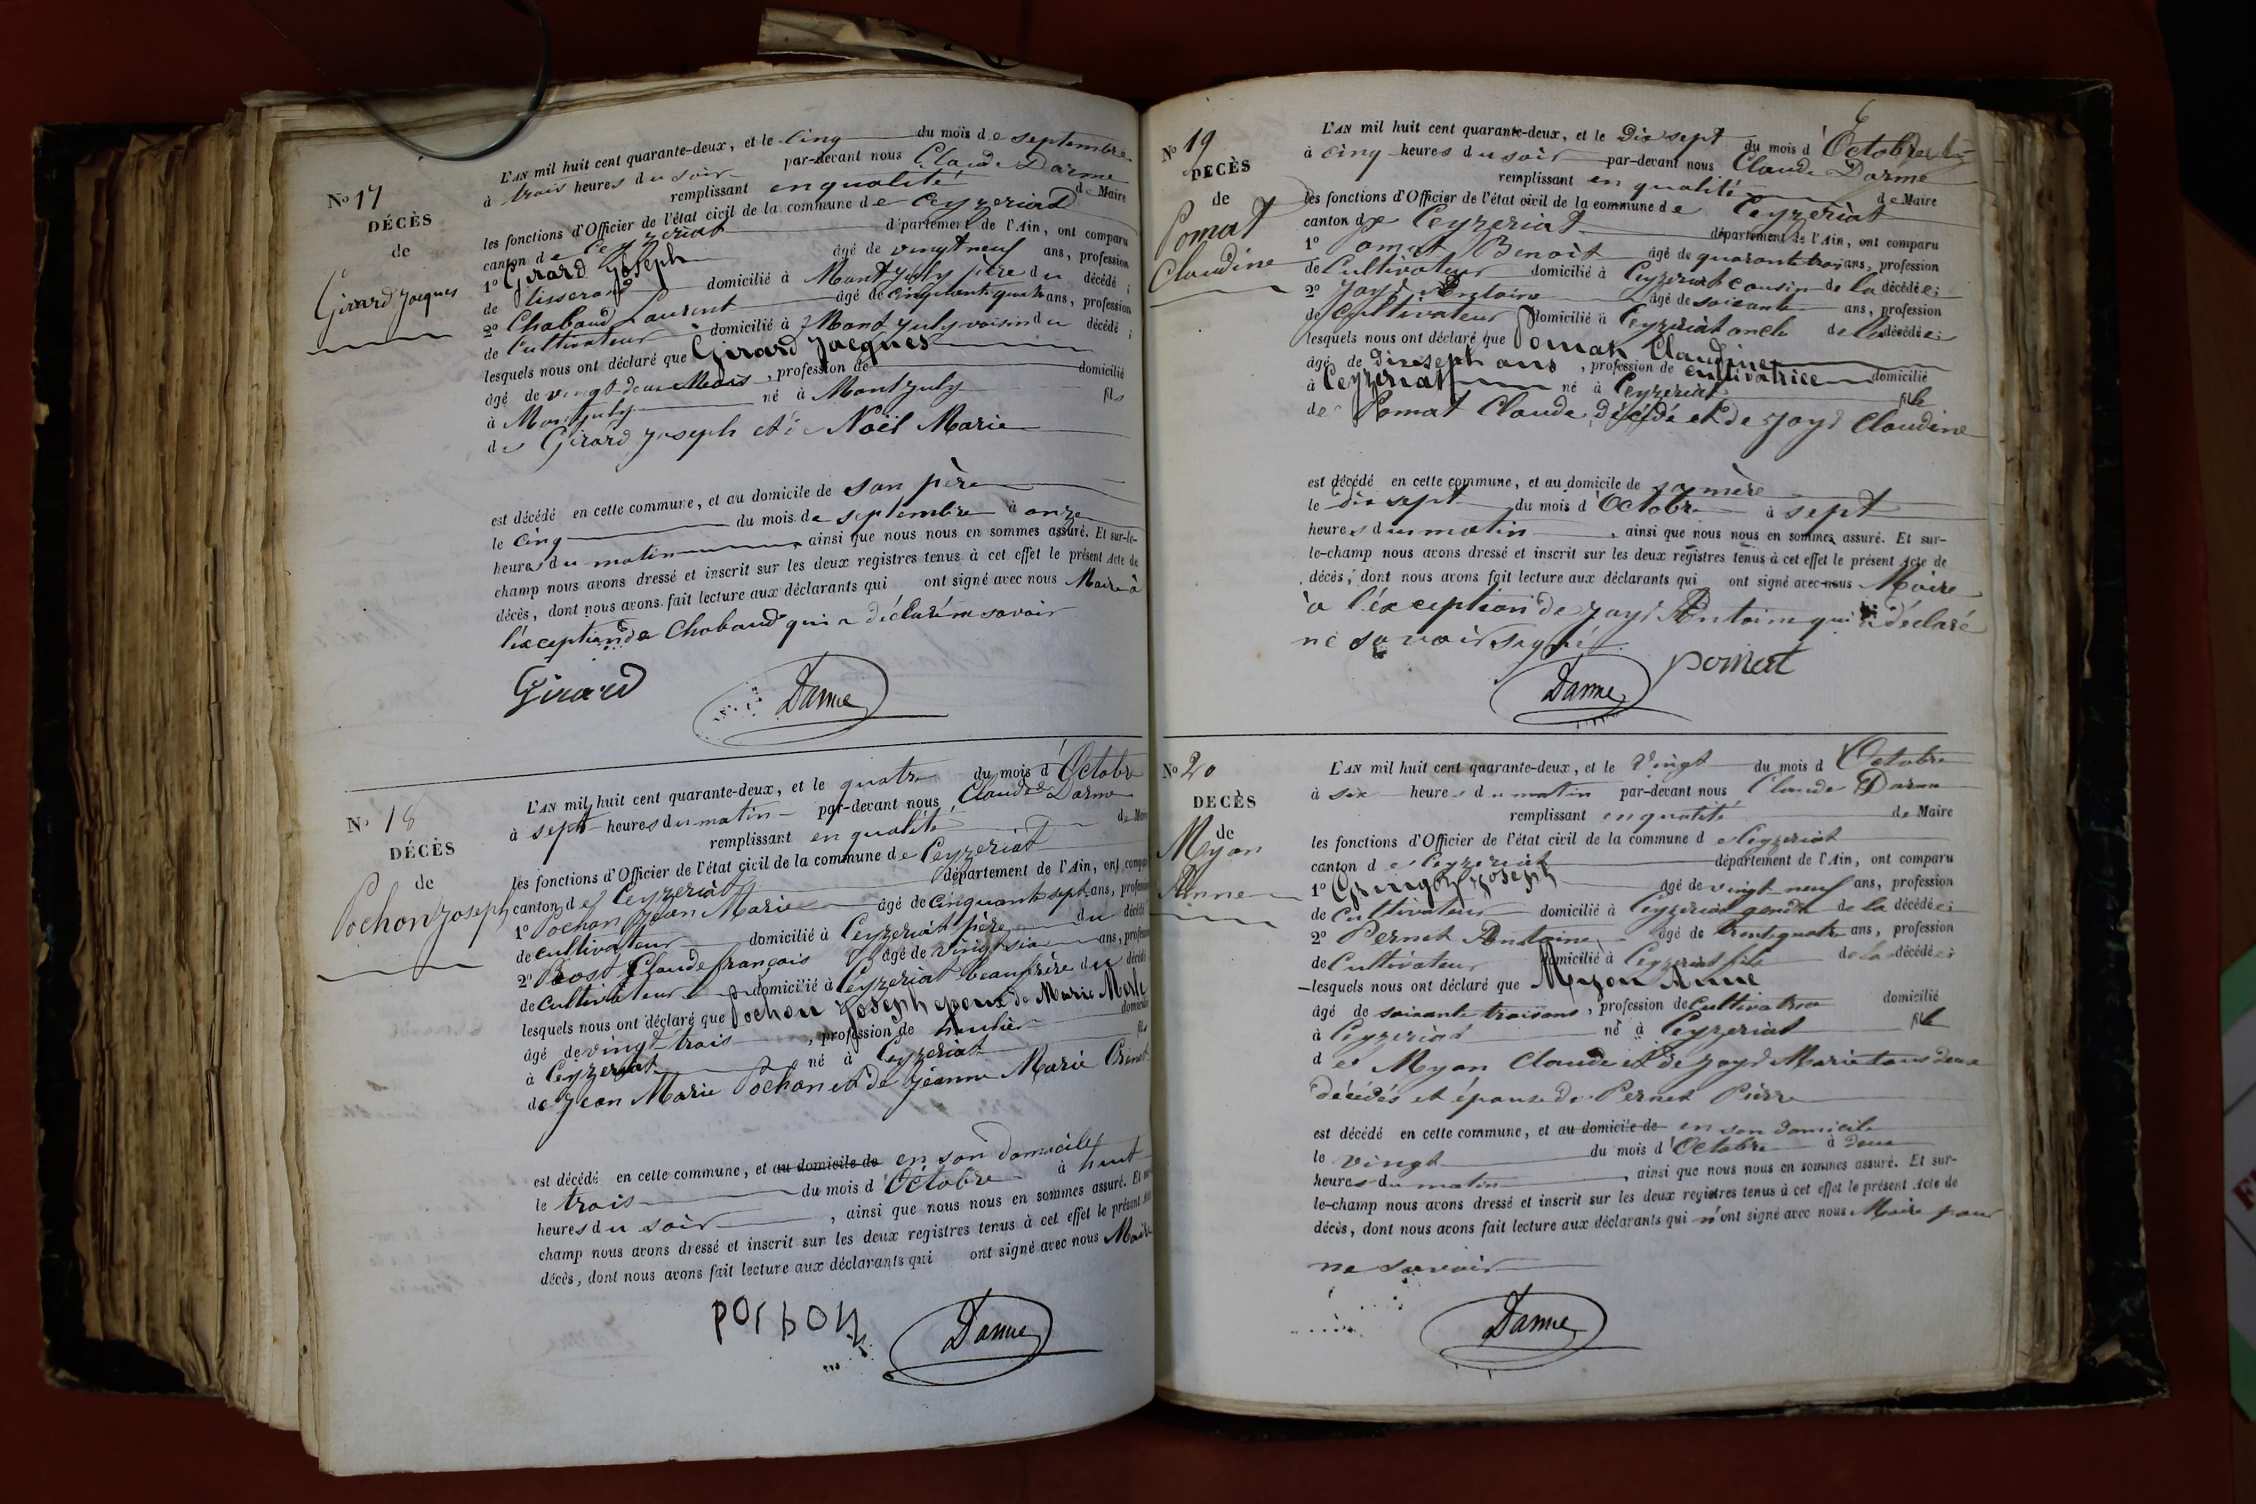 N° 17
DÉCÈS
de
Girard Jacques
L'AN mil huit cent quarante-deux, et le cinq du mois de septembre
à trois heures du soir par-devant nous Claude Darme
remplissant en qualité de Maire
les fonctions d'Officier de l'état civil de la commune de Ceyzeriat
canton de Ceyzeriat département de l'Ain, ont comparu
1° Girard Joseph âgé de vingt neuf ans, profession
de tisserand domicilié à Montjuly père du décédé ;
2° Chabaud Laurent âgé de cinquante quatre ans, profession
de Cultivateur domicilié à Montjuly voisin du décédé ;
lesquels nous ont déclaré que Girard Jacques
âgé de vingt deux Mois, profession de domicilié
à Montjuly né à Montjuly fils
de Girard Joseph et de Noël Marie
est décédé en cette commune, et au domicile de son père
le cinq du mois de septembre à onze
heures du matin, ainsi que nous nous en sommes assuré. Et sur-le-
champ nous avons dressé et inscrit sur les deux registres tenus à cet effet le présent Acte de
décès, dont nous avons fait lecture aux déclarants qui ont signé avec nous Maire à
l'exception de Chabaud qui a déclaré ne savoir
Girard Darme
N° 18
DÉCÈS
de
Pochon Joseph
L'AN mil huit cent quarante-deux, et le quatre du mois d'Octobre
à sept heures du matin par-devant nous Claude Darme
remplissant en qualité de Maire
les fonctions d'Officier de l'état civil de la commune de Ceyzeriat
canton de Ceyzeriat département de l'Ain, ont comparu
1° Pochon Jean Marie âgé de cinquante sept ans, profession
de cultivateur domicilié à Ceyzeriat père du décédé
2° Bost Claude françois âgé de vingt six ans, profession
de cultivateur domicilié à Ceyzeriat beaufrère du décédé
lesquels nous ont déclaré que Pochon Joseph époux de Marie Merle
âgé de vingt trois, profession de domicilié
à Ceyzeriat né à Ceyzeriat fils
de Jean Marie Pochon et de Jeanne Marie
est décédé en cette commune, et au domicile de en son domicile
le trois du mois d'Octobre à huit
heures du soir, ainsi que nous nous en sommes assuré. Et sur-
champ nous avons dressé et inscrit sur les deux registres tenus à cet effet le présent Acte
décès, dont nous avons fait lecture aux déclarants qui ont signé avec nous Maire
pochon Darme
N° 19
DÉCÈS
de
Pomat
Claudine
L'AN mil huit cent quarante-deux, et le Dix sept du mois d'Octobre
à cinq heures du soir par-devant nous Claude Darme
remplissant en qualité de Maire
les fonctions d'Officier de l'état civil de la commune de Ceyzeriat
canton de Ceyzeriat département de l'Ain, ont comparu
1° Pomat Benoit âgé de quarante trois ans, profession
de Cultivateur domicilié à Ceyzeriat cousin de la décédée ;
2° Joyd Antoine âgé de soixante ans, profession
de Cultivateur domicilié à Ceyzeriat oncle de la décédée ;
lesquels nous ont déclaré que Pomat Claudine
âgé de dixsept ans, profession de cultivatrice domicilié
à Ceyzeriat né à Ceyzeriat fille
de Pomat Claude, décédé et de Joyd Claudine
est décédé en cette commune, et au domicile de sa mère
le dix sept du mois d'Octobre à sept
heures du matin, ainsi que nous nous en sommes assuré. Et sur-
le-champ nous avons dressé et inscrit sur les deux registres tenus à cet effet le présent Acte de
décès, dont nous avons fait lecture aux déclarants qui ont signé avec nous Maire
à l'exception de Joyd Antoine qui a déclaré
ne savoir signé
Darme pomat
N° 20
DÉCÈS
de
Myon
Anne
L'AN mil huit cent quarante-deux, et le Vingt du mois d Octobre
à six heures du matin par-devant nous Claude Darme
remplissant en qualité de Maire
les fonctions d'Officier de l'état civil de la commune de Ceyzeriat
canton de Ceyzeriat département de l'Ain, ont comparu
1° Gringoz Joseph âgé de vingt neuf ans, profession
de Cultivateur domicilié à Ceyzeriat gendre de la décédée ;
2° Pernet Antoine âgé de trente quatre ans, profession
de Cultivateur domicilié à Ceyzeriat fils de la décédée ;
lesquels nous ont déclaré que Myon Anne
âgé de soixante trois ans, profession de cultivatrice domicilié
à Ceyzeriat né à Ceyzeriat fille
de Myon Claude et de Joyd Marie tous deux
décédés et épouse de Pernet Pierre
est décédé en cette commune, et au domicile de en son domicile
le vingt du mois d'Octobre à deux
heures du matin, ainsi que nous nous en sommes assuré. Et sur-
le-champ nous avons dressé et inscrit sur les deux registres tenus à cet effet le présent Acte de
décès, dont nous avons fait lecture aux déclarants qui n'ont signé avec nous Maire pour
ne savoir
Darme